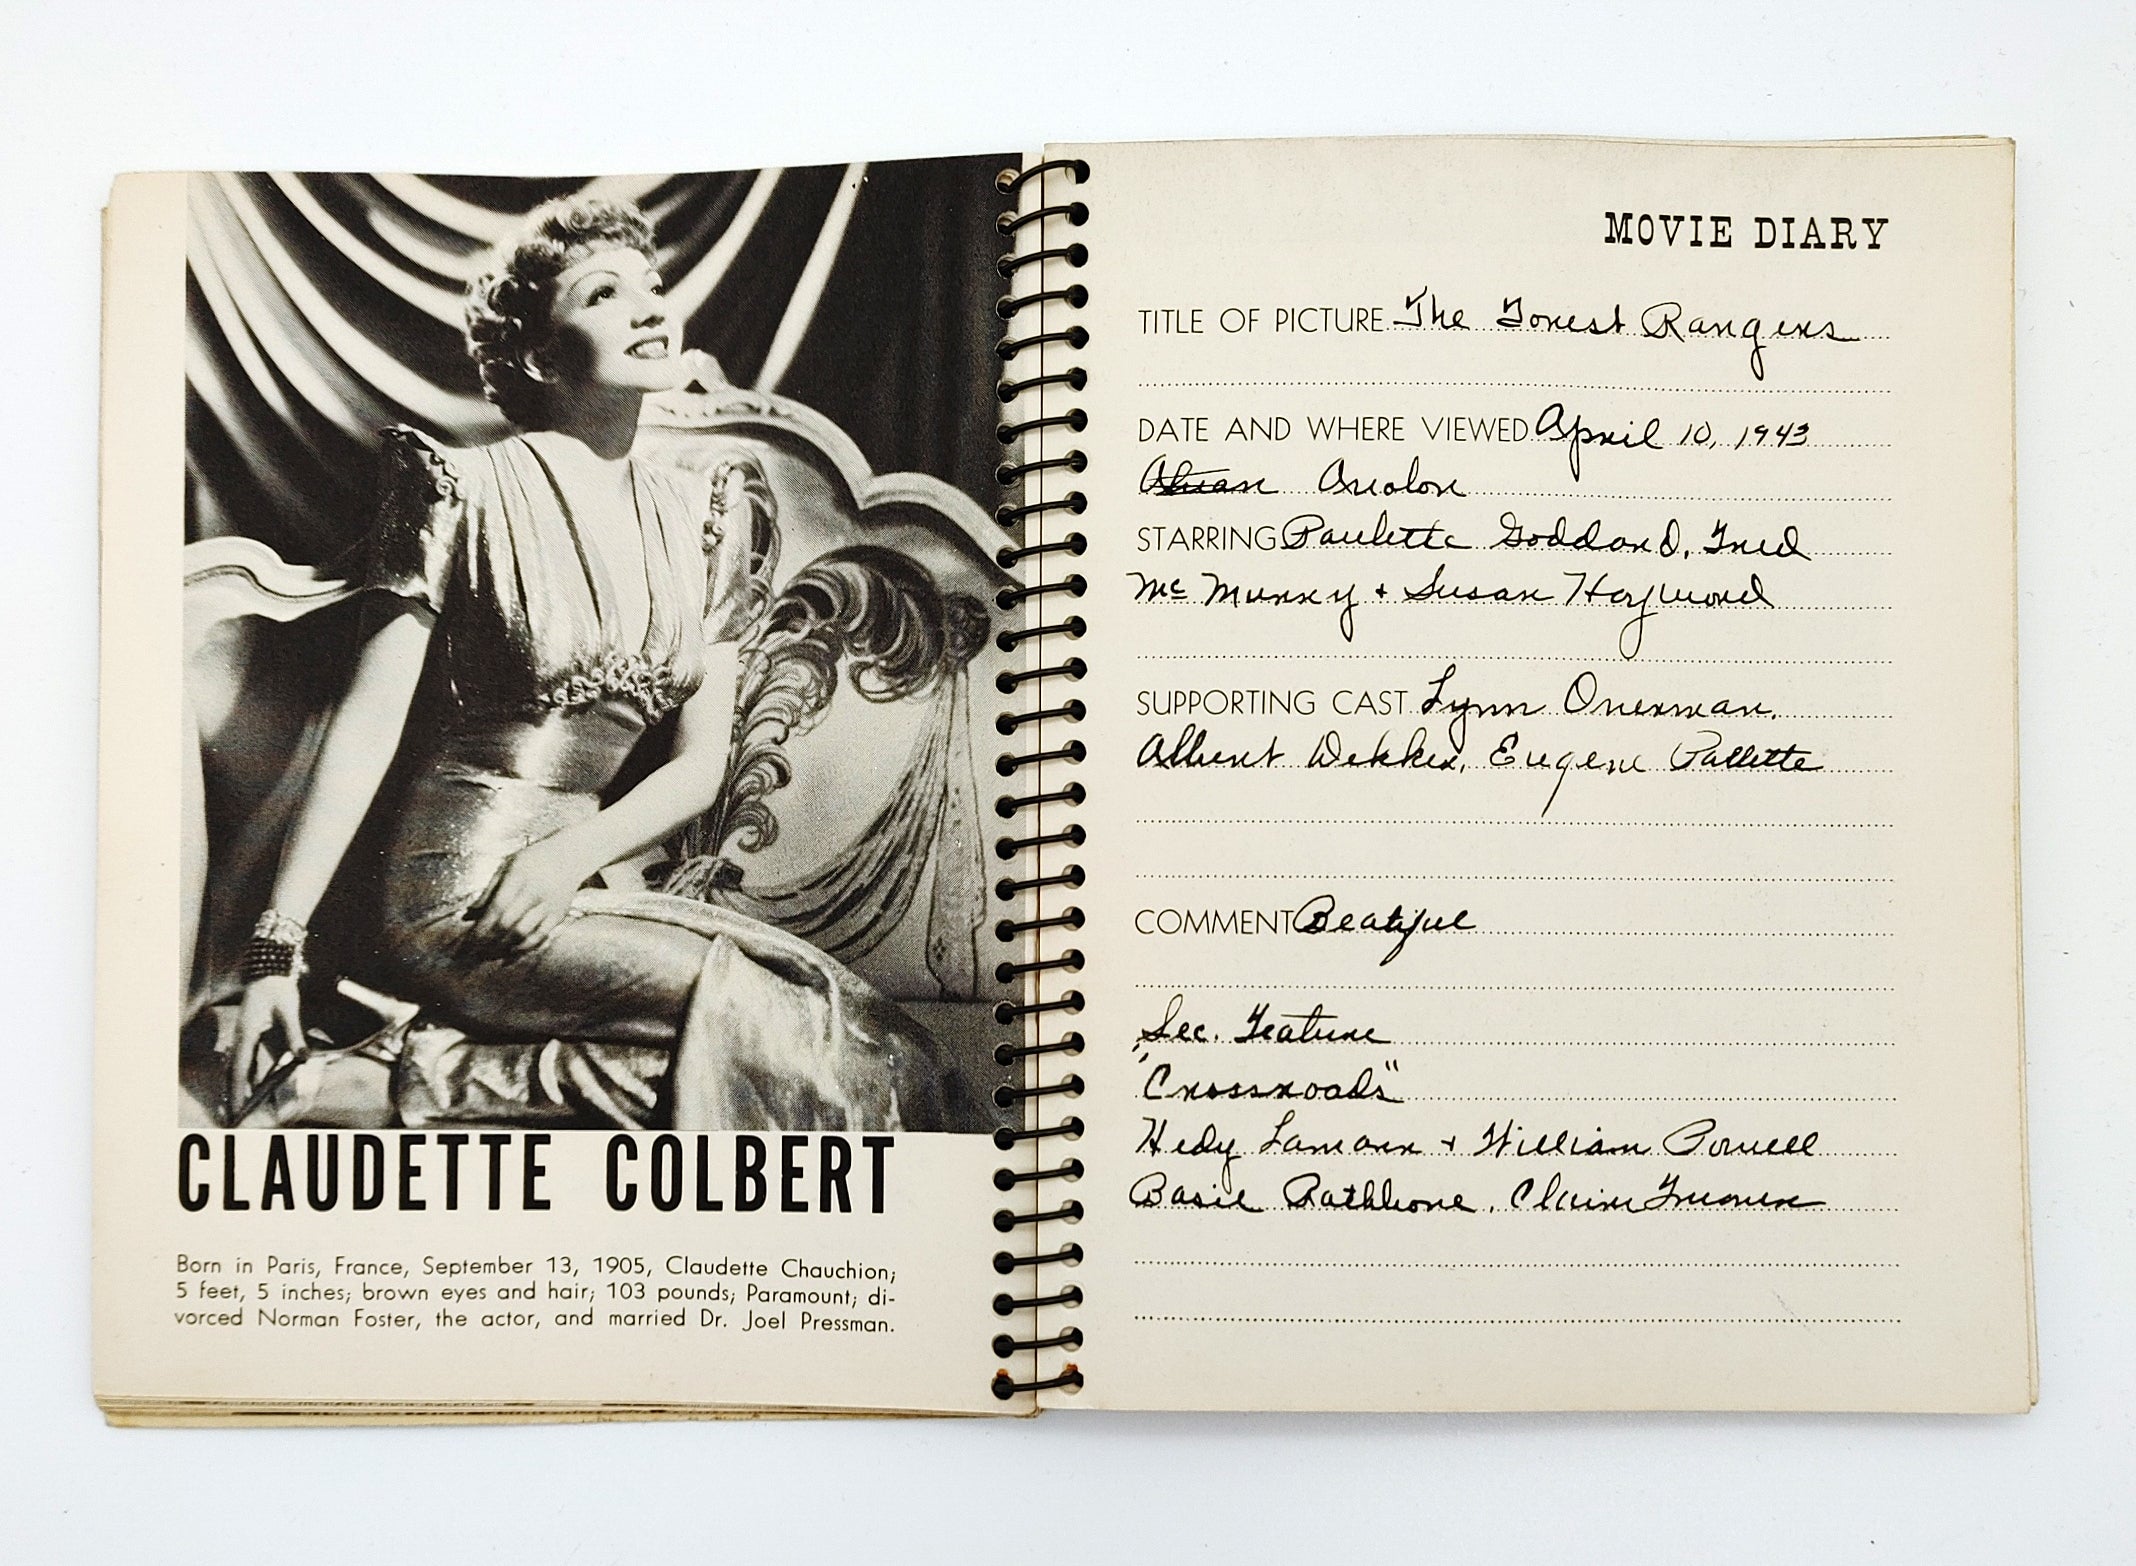 CLAUDETTE COLBERT
Born in Paris, France, September 13, 1905, Claudette Chauchion;
5 feet, 5 inches; brown eyes and hair; 103 pounds; Paramount; di-
vorced Norman Foster, the actor, and married Dr. Joel Pressman.
MOVIE DIARY
TITLE OF PICTURE The Forest Rangers
DATE AND WHERE VIEWED April 10, 1943
Avalon
STARRING Paulette Goddard, Fred
Mc Murry + Susan Hayward
SUPPORTING CAST Lynn Overman,
Albert Dekker, Eugene Pallette
COMMENT Beatiful
Sec. Feature
"Crossroads"
Hedy Lamarr + William Powell
Basil Rathbone, Claire Trevor